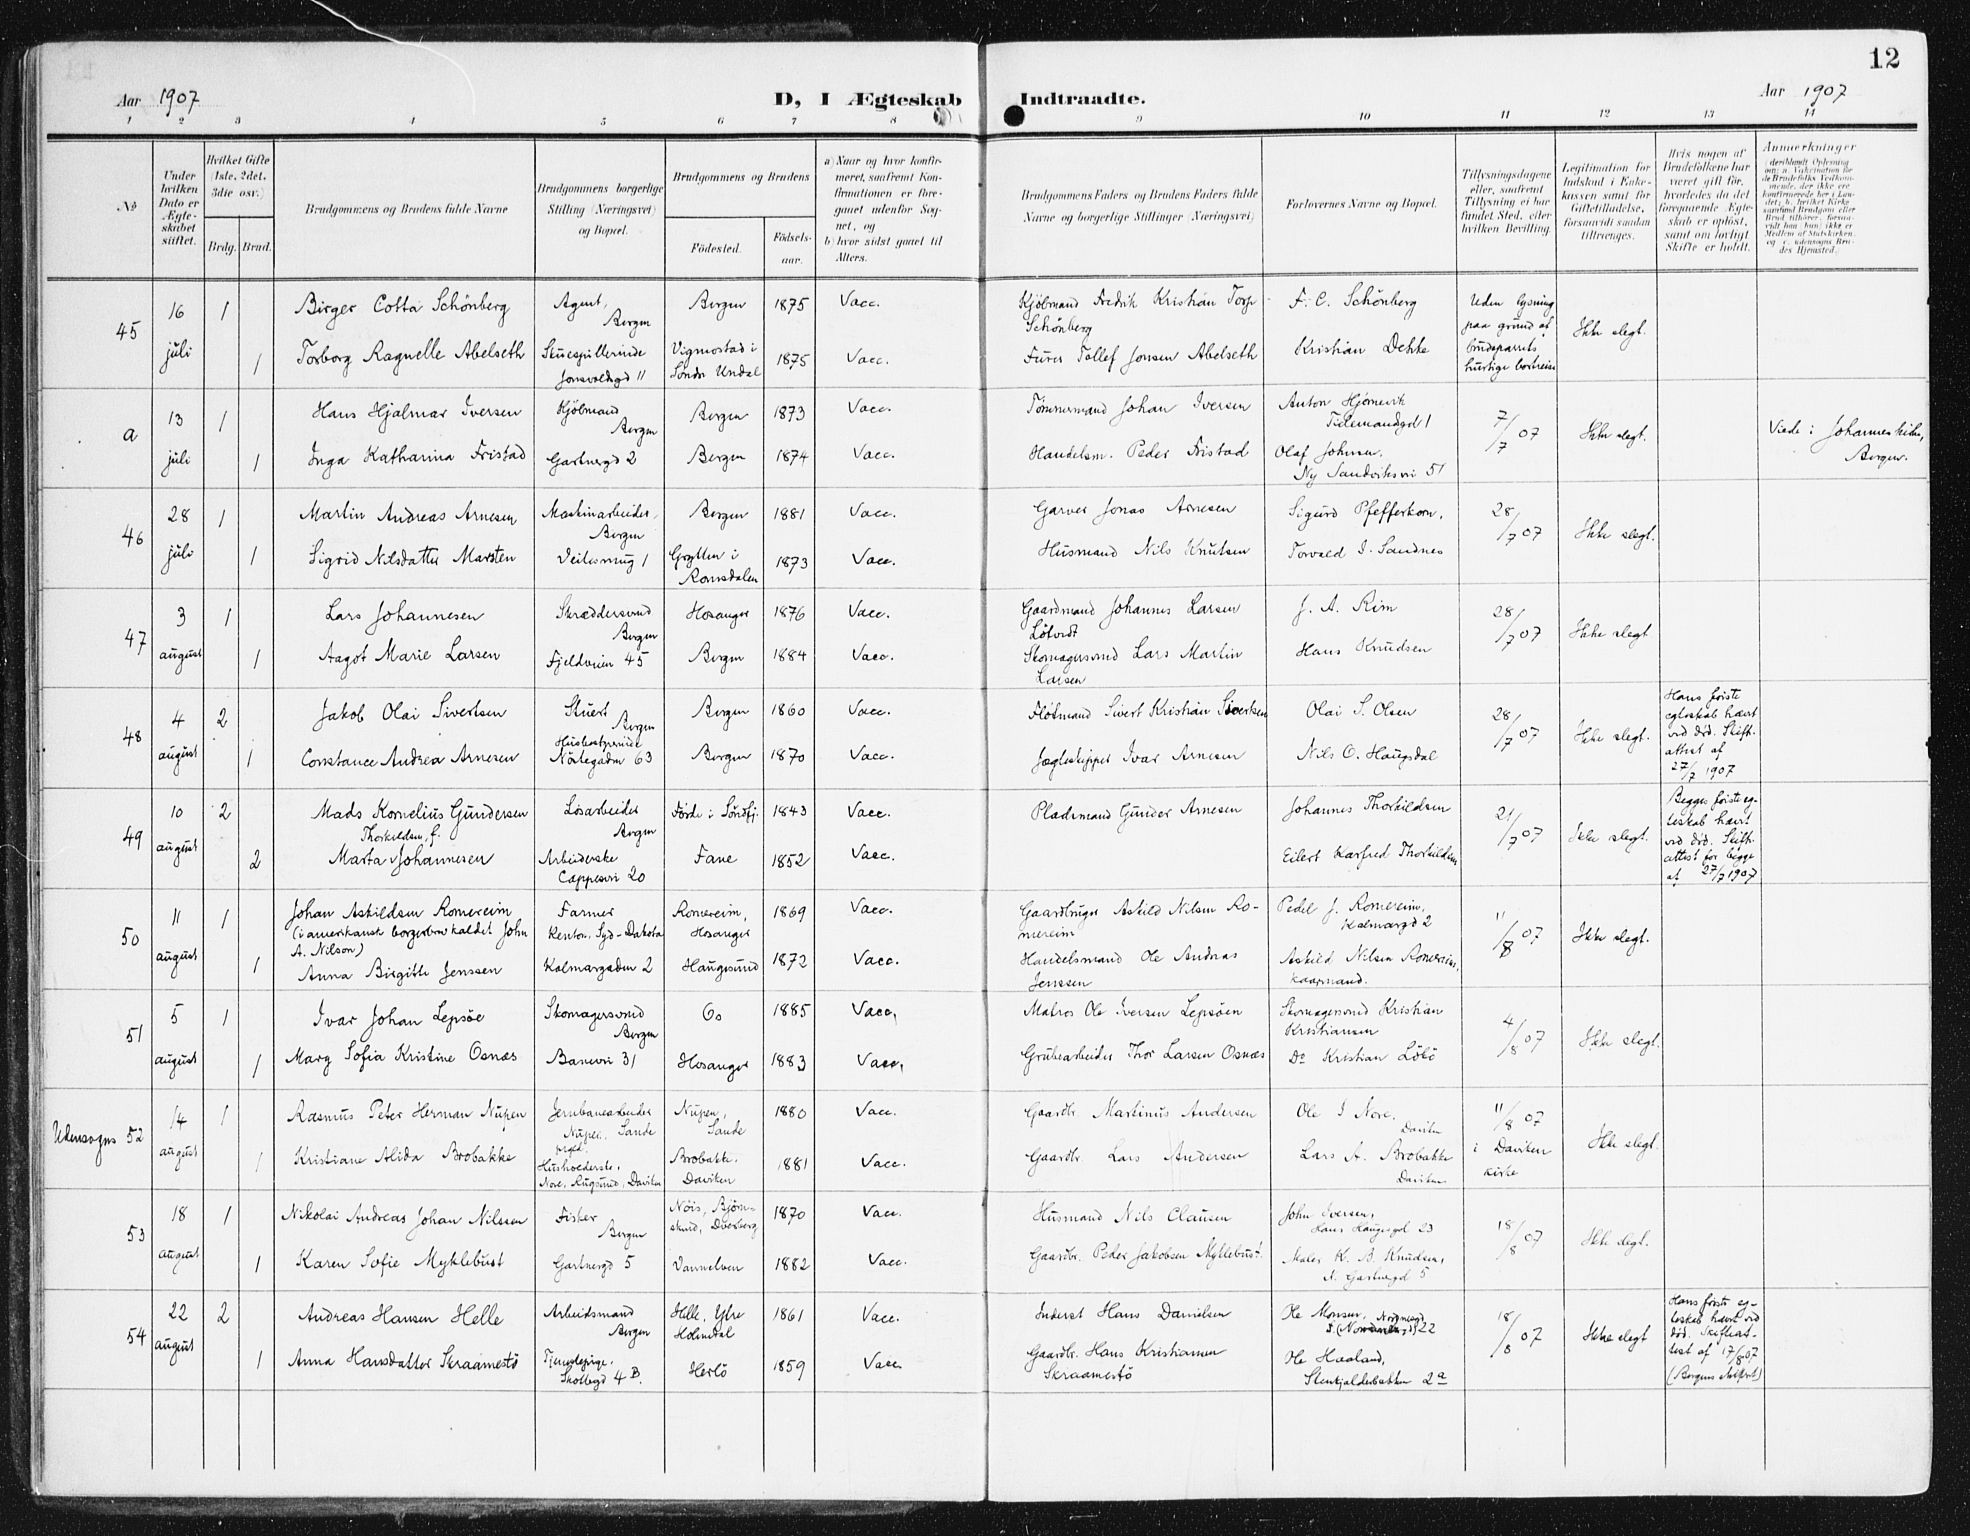 12
Aar 1907
D, I Ægteskab Indtraadte.
Aar 1907
1 2 3 4 5 6 7 8 9 10 11 12 13 14
No
Under hvilken Dato er Ægteskabet stiftet.
Hvilket Gifte (1ste, 2det, 3die osv.)
Brdg. Brud.
Brudgommens og Brudens fulde Navne
Brudgommens borgerlige Stilling (Næringsvei) og Bopæl.
Brudgommens og Brudens
Fødested.
Fødselsaar.
a) Naar og hvor konfirmeret, saafremt Konfirmationen er foregaaet udenfor Sognet, og
b) hvor sidst gaaet til Alters.
Brudgommens Faders og Brudens Faders fulde Navne og borgerlige Stillinger (Næringsvei)
Forlovernes Navne og Bopæl.
Tillysningsdagene eller, saafremt Tillysning ei har fundet Sted, efter hvilken Bevilling.
Legitimation for Indskud i Enkekassen samt for Giftetilladelse, forsaavidt saadan tiltrænges.
Hvis nogen af Brudefolkene har været gift før, hvorledes da det foregaaende Ægteskab er opløst, samt om lovligt Skifte er holdt.
Anmærkninger
45
16 juli
1
Birger Cotta Schönberg
Agent, Bergen
Bergen
1875
Vacc.
Kjöbmand Fredrik Kristian Torp Schönberg
F. C. Schönberg
Uden lysning paa grund af brudeparrets hurtige bortreise
Ikke slegt.
1
Torborg Ragnelle Abelseth
Skuespillerinde
Vigmostad i Söndr Undal
1875
Vacc.
Furer Tollef Jonsen Abelseth
Kristian Dekke
a
13 juli
1
Hans Hjalmar Iversen
Kjöbmand Bergen
Bergen
1873
Vacc.
Tömmermand Johan Iversen
Anton Hjörnevik
Tidemandgd 1
7/7 07
Ikke slegt.
Viede i Johanneskirken, Bergen.
1
Inga Katharina Fristad
Gartnergd 2
Bergen
1874
Vacc.
Handelsm. Peder Fristad
Olaf Johnsen,
Ny Sandviksvei 51
46
28 juli
1
Martin Andreas Arnesen
Maskinarbeider, Bergen
Bergen
1881
Vacc.
Garver Jonas Arnesen
Sigurd Pfefferkorn.
28/7 07
Ikke slegt.
1
Sigrid Nilsdatter Marsten
Veitesmug 1
Grytten i Romsdalen
1873
Vacc.
Husmand Nils Knutsen
Torvald I. Sandnes
47
3 august
1
Lars Johannesen
Skræddersvend Bergen
Hosanger
1876
Vacc.
Gaardmand Johannes Larsen Lötvedt
J. A. Rim
28/7 07
Ikke slegt
1
Aagot Marie Larsen
Fjeldveien 45
Bergen
1884
Vacc.
Skomagersvend Lars Martin Larsen
Hans Knudsen
48
4 august
2
Jakob Olai Sivertsen
Stuert Bergen
Bergen
1860
Vacc.
Flötmand Sivert Kristian Sivertsen
Olai S. Olsen
28/7 07
Ikke slegt.
Hans förste egteskab hævt ved död. Skifteattest af 27/7 1907
1
Constance Andrea Arnesen
Husbestyrerinde Nöstegaden 63
Bergen
1870
Vacc.
Jægteskipper Ivar Arnesen
Nils O. Haugsdal
49
10 august
2
Mads Kornelius Gundersen
Lösarbeider Bergen
Förde i Söndfj.
1843
Vacc.
Pladsmand Gunder Arnesen
Johannes Thorkildsen
21/7 07
Ikke slegt.
Begges förste egteskab hævt ved död. Skifteattest for begge af 27/7 1907
2
Thorkildsen, f.
Marta Johannesen
Arbeiderske
Cappesvei 20
Fane
1852
Vacc.
Eilert Karfred Thorkildsen
50
11 august
1
Johan Askildsen Romereim
(i amerikansk borgerbrev kaldet John A. Nilson)
Farmer
Renton, Syd-Dakota
Romereim, Hosanger
1869
Vacc.
Gaardbruger Askild Nilsen Romereim
Peder J. Romereim,
Kalmargd 2
11/8 07
Ikke slegt.
1
Anna Birgitte Jenssen
Kalmargaden 2
Haugesund
1872
Vacc.
Handelsmand Ole Andreas Jenssen
Askild Nilsen Romereim, kaarmand.
51
5 august
1
Ivar Johan Lepsöe
Skomagersvend Bergen
Os
1885
Vacc,
Matros Ole Iversen Lepsöen
Skomagersvend Kristian Kristiansen
4/8 07
Ikke slegt.
1
Marg Sofia Kristine Osnæs
Banevei 31
Hosanger
1883
Vacc,
Grubearbeider Thor Larsen Osnæs
Do Kristian Löbö
Udensogns 52
14 august
1
Rasmus Peter Herman Nupen
Jernbanearbeider
Nupen, Sande
Nupen, Sande
1880
Vacc.
Gaardbr. Martinus Andersen
Ole I Nore,
Daviken
11/8 07
i Daviken kirke
Ikke slegt.
1
Kristiane Alida Brobakke
Nore, Rugsund, Daviken
Brobakke, Daviken
1881
Vacc.
Gaardbr. Lars Andersen
Lars A. Brobakke
Daviken
53
18 august
1
Nikolai Andreas Johan Nilssen
Fisker
Bergen
1870
Vacc.
Husmand Nils Clausen
John Iversen,
Hans Haugesgd 23
18/8 07
Ikke slegt.
1
Karen Sofie Myklebust
Gartnergd 5
Vannelven
1882
Vacc.
Gaardbr. Peder Jakobsen Myklebust.
Maler K. B. Knudsen,
N. Gartnergd 5
54
22 august
2
Andreas Hansen Helle
Arbeidsmand Bergen
Helle, Ytre Holmedal
1861
Vacc.
Inderst Hans Danielsen
Ole Monsen,
22
18/8 07
Ikke slegt
Hans förste egteskab hævt ved död. Skifteattest af 17/8 07
1
Anna Hansdatter Skraamestö
Tjenestepige,
Skottegd 4 B.
Herlö
1859
Vacc.
Gaardbr. Hans Kristiansen Skraamestö
Ole Haaland,
Stenkjelderbakken 2a